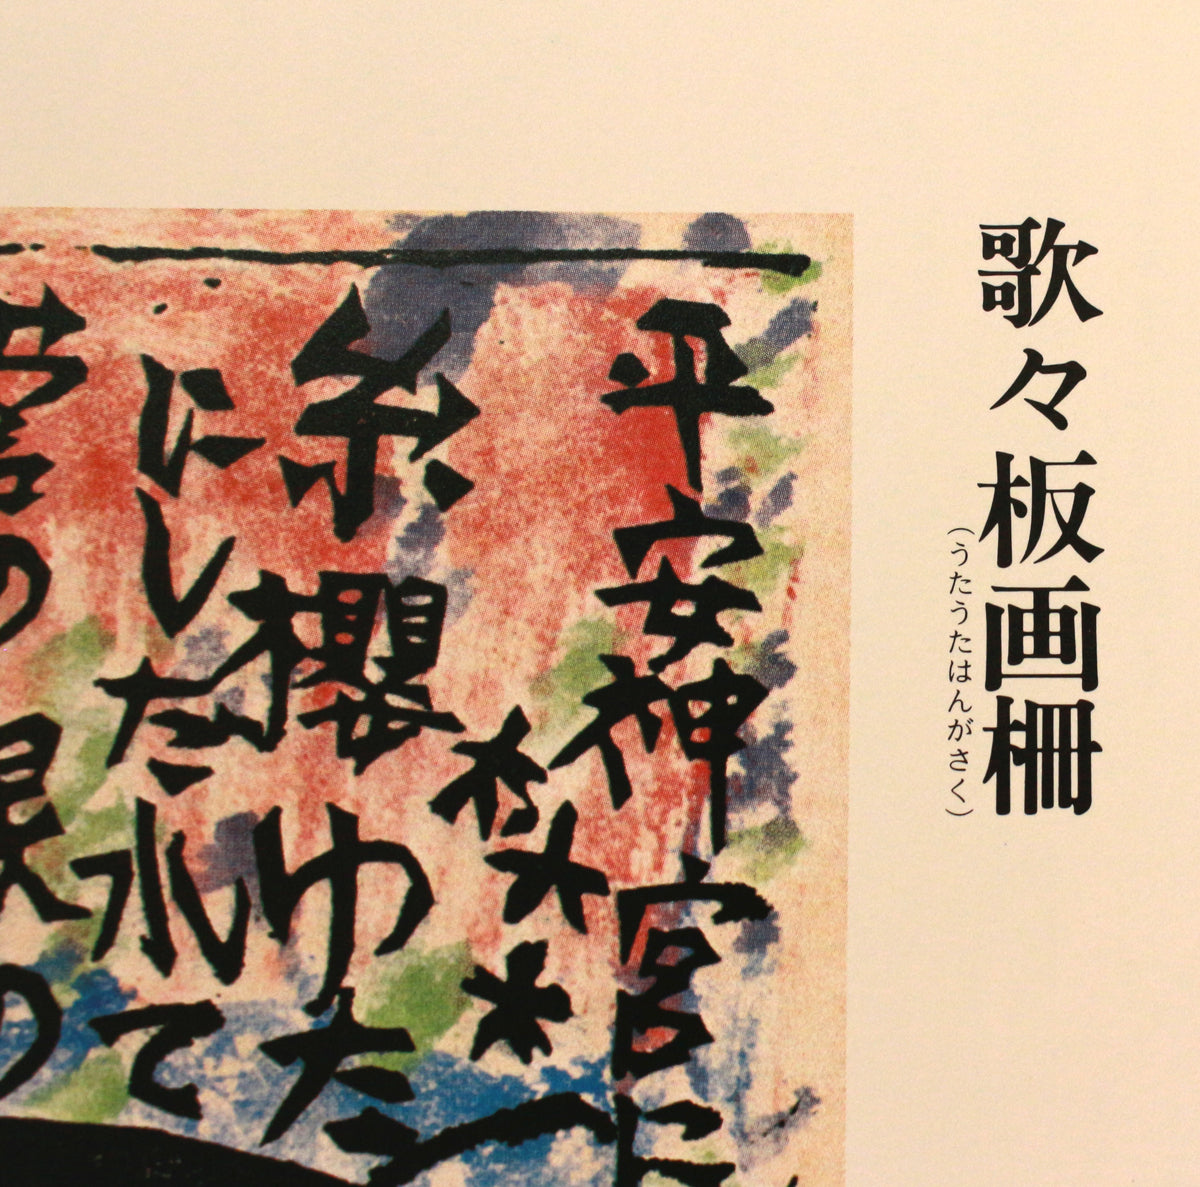 歌々板画柵
（うたうたはんがさく）
平安神宮に
糸櫻ゆた
にしたれて